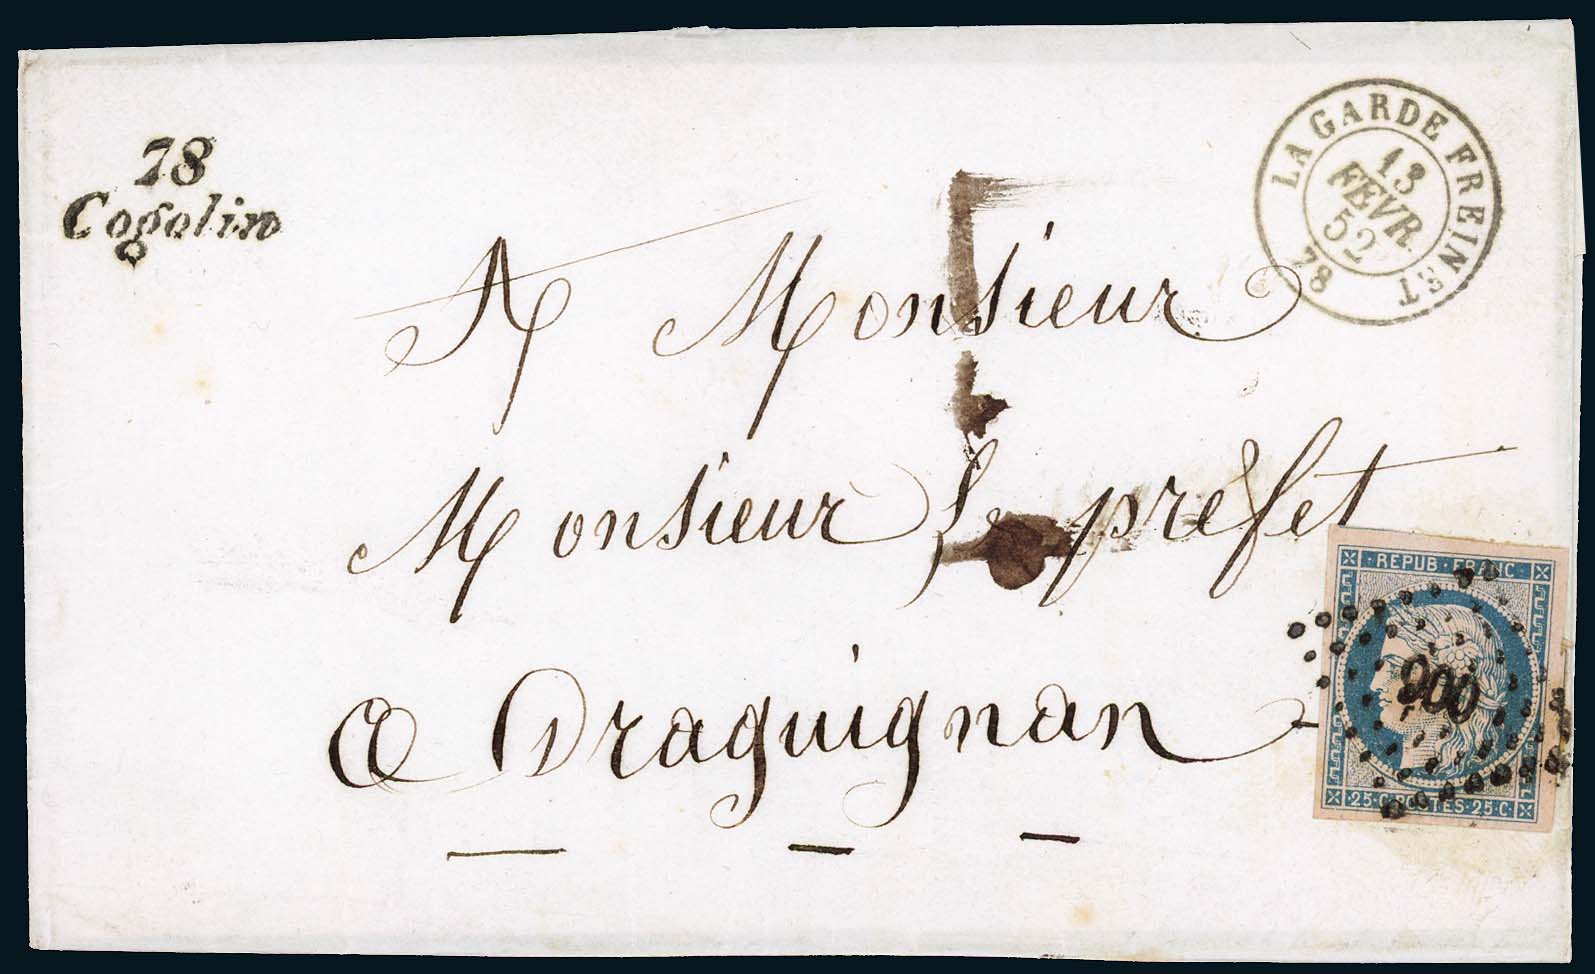 78
Cogolin
LA GARDE FREINET
13
FEVR
52
78
A Monsieur
Monsieur le préfet
a Draguignan
REPUB·FRANC
900
25·C·POSTES·25·C